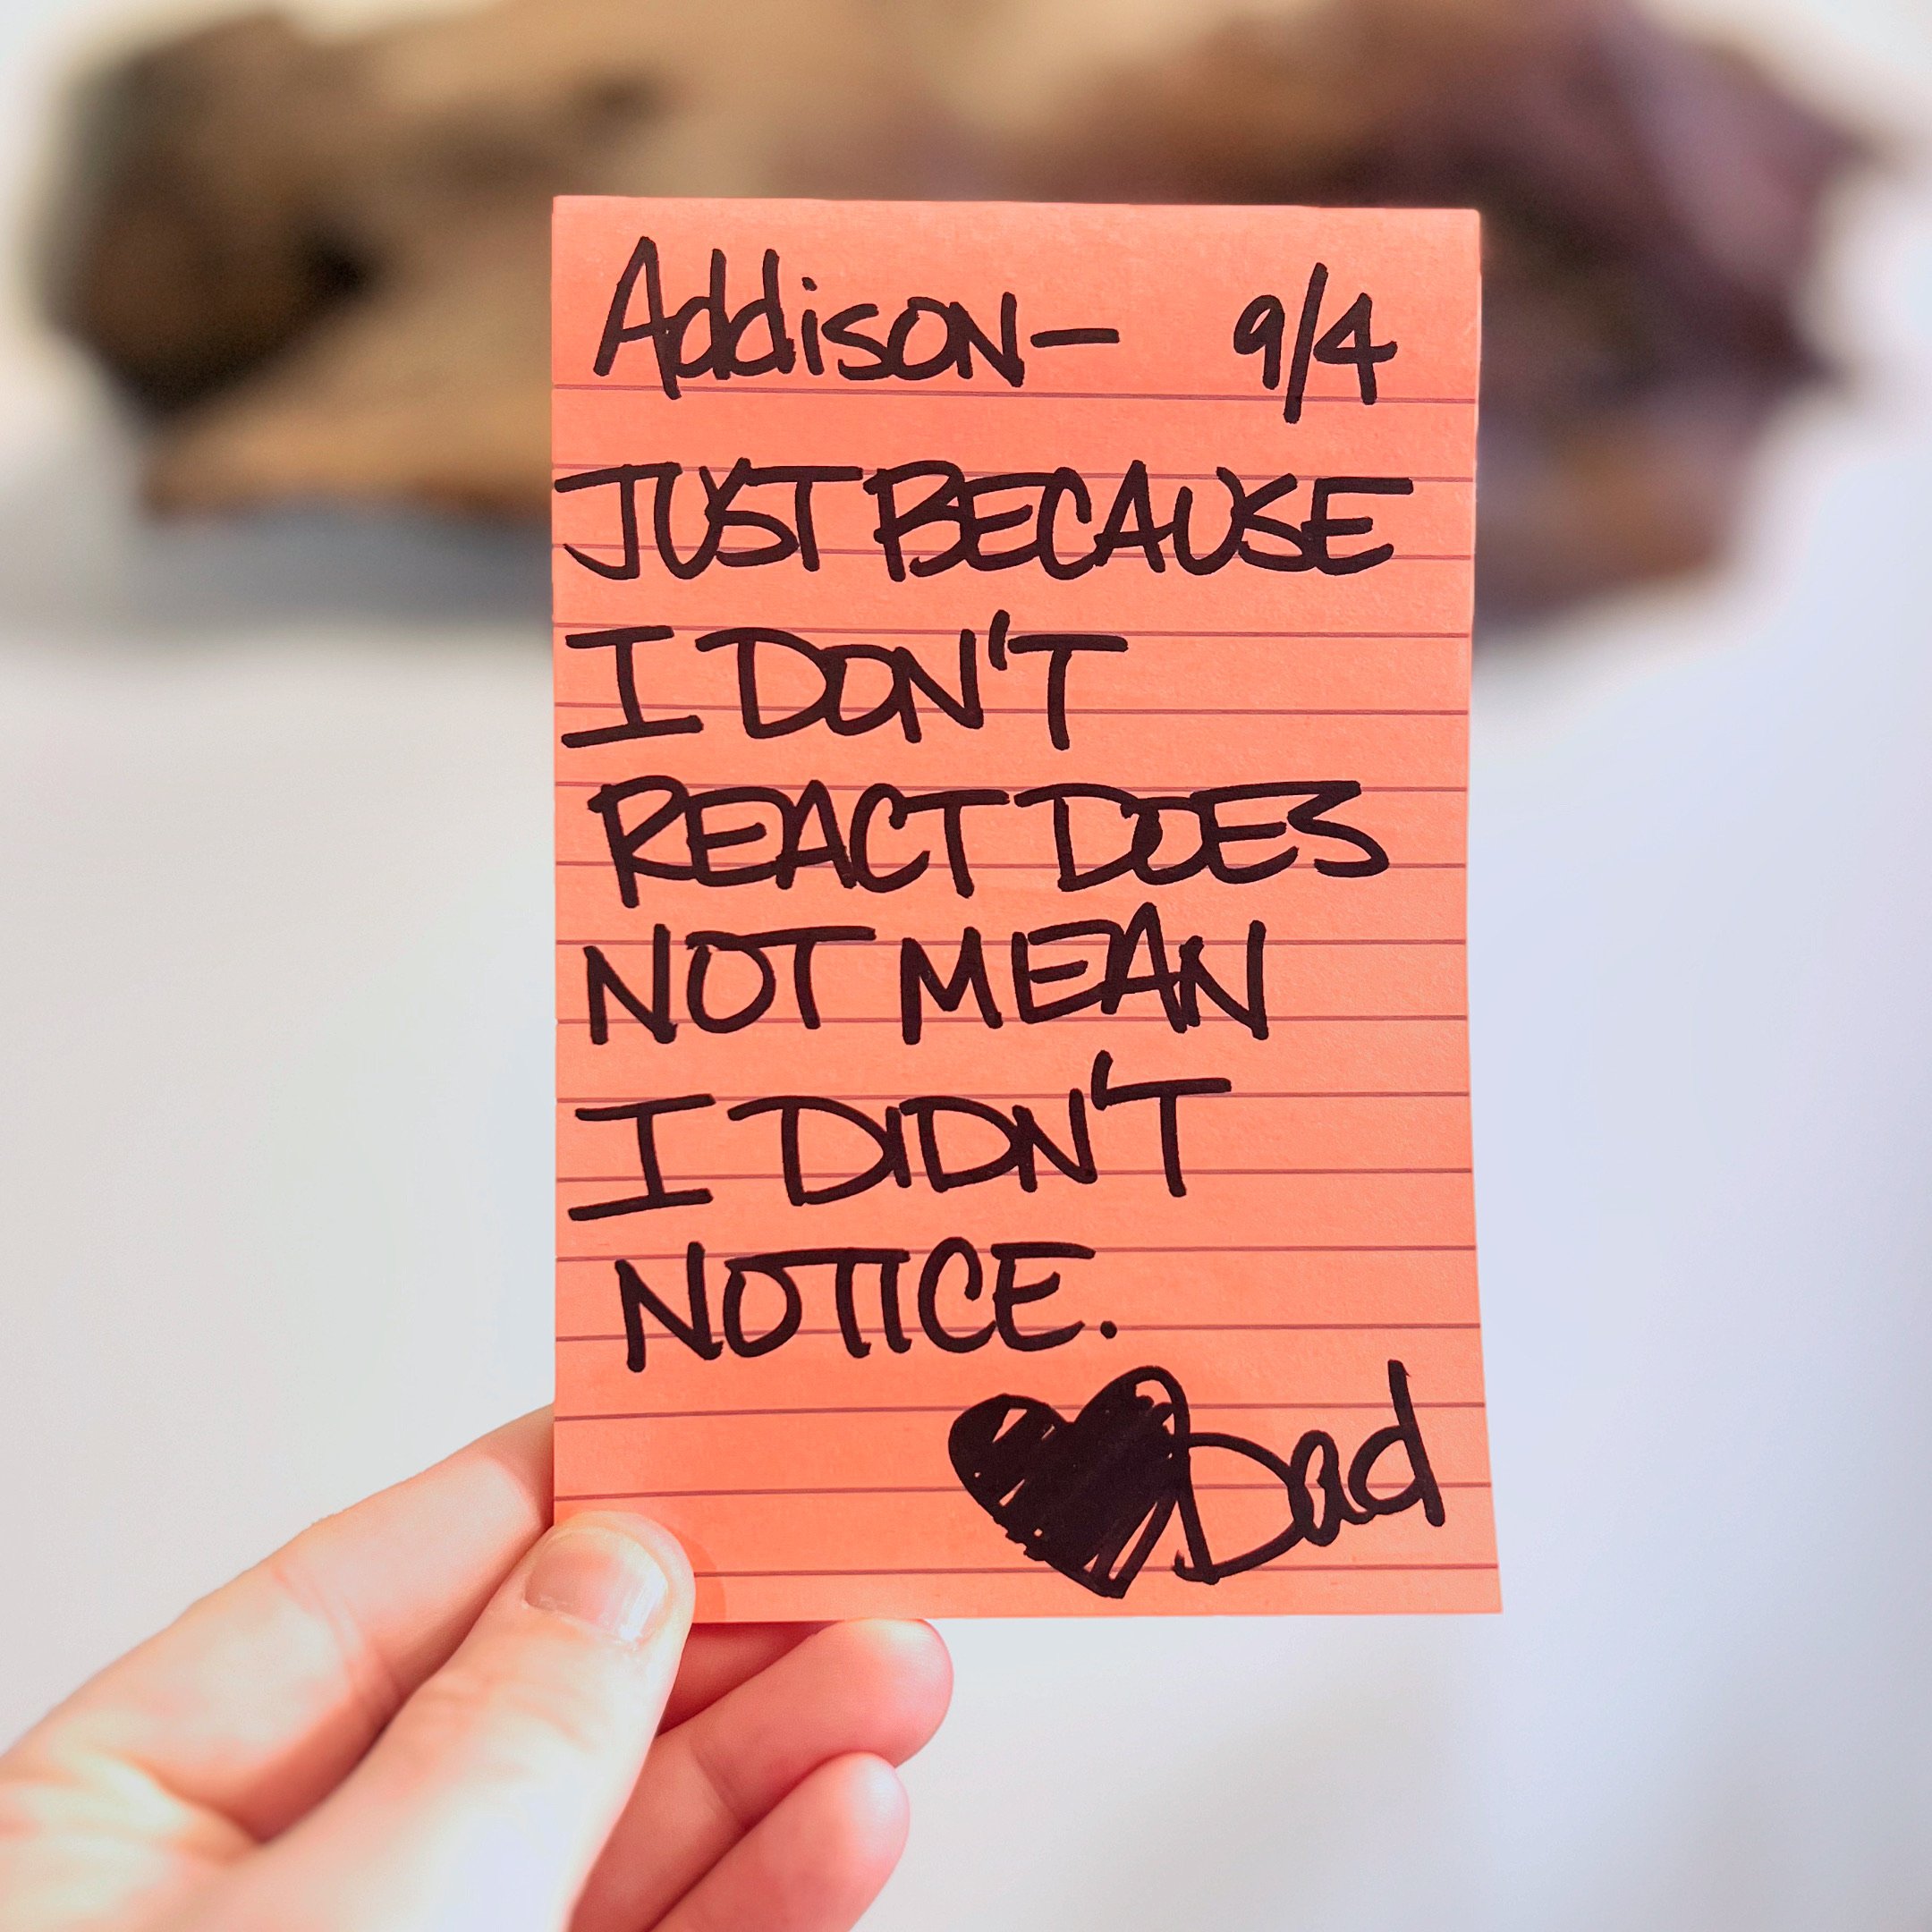 Addison- 9/4
JUST BECAUSE
I DON'T
REACT DOES
NOT MEAN
I DIDN'T
NOTICE.
Dad